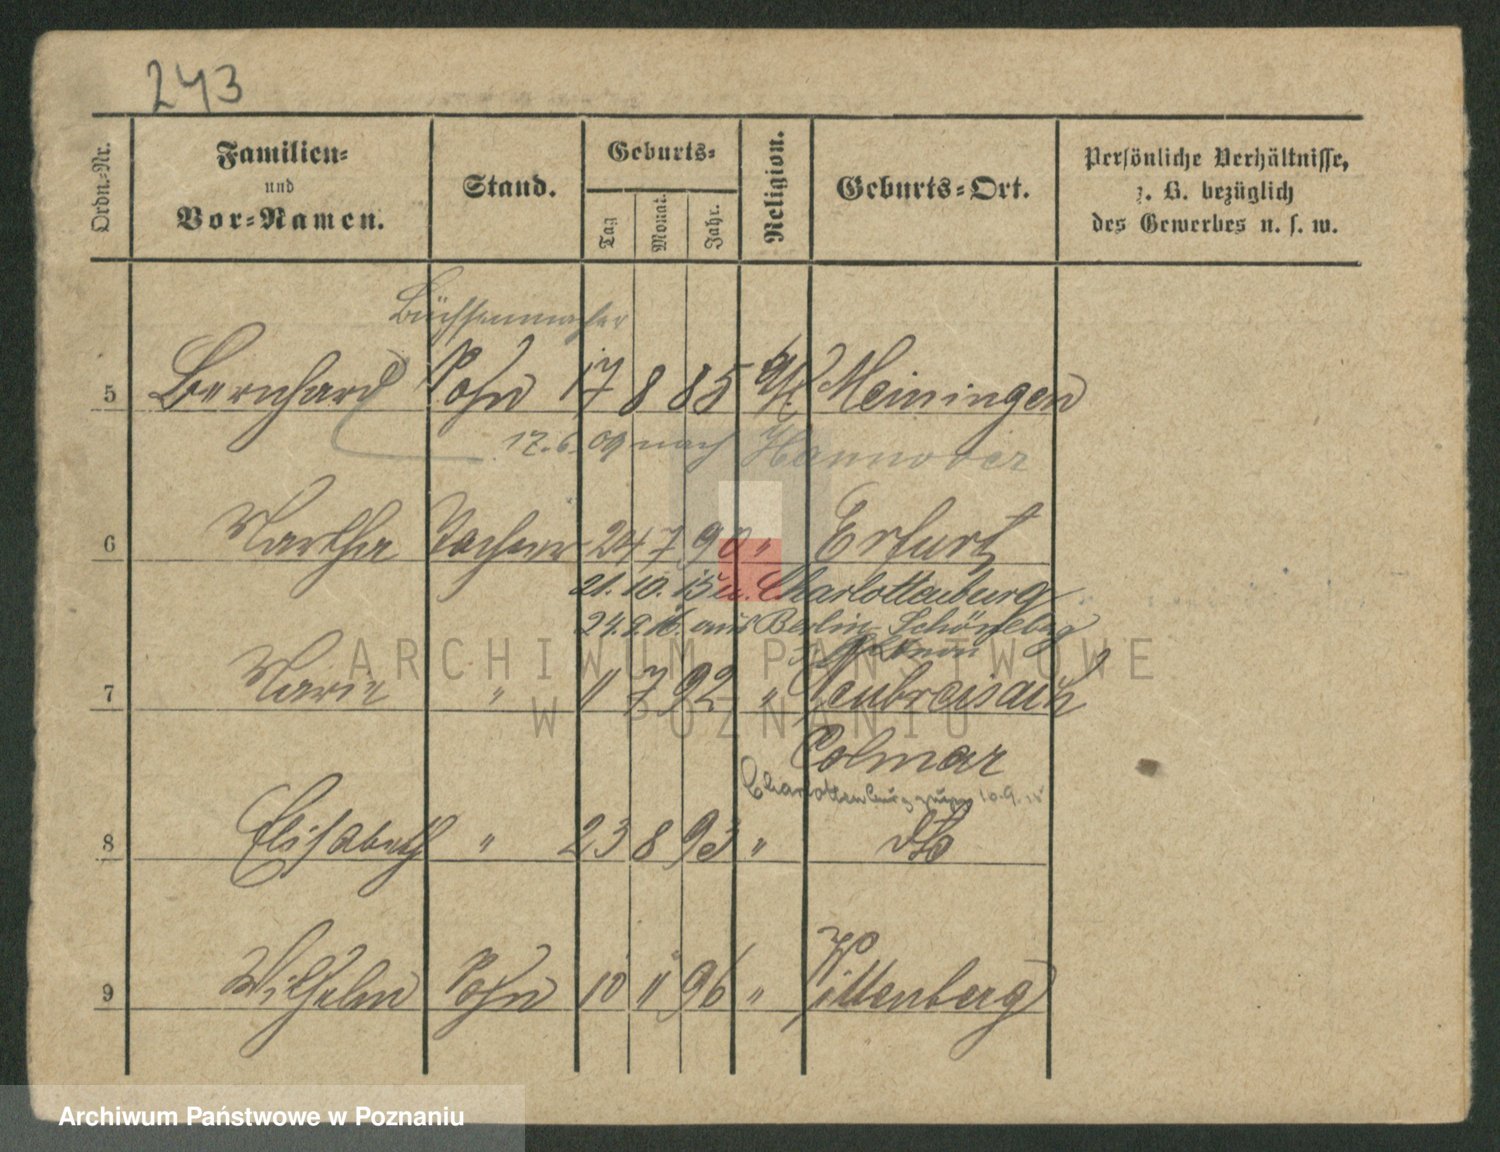 243
Ordn.-Nr.
Familien-
und
Vor-Namen.
Stand.
Geburts-
Tag
Monat.
Jahr.
Religion.
Geburts-Ort.
Persönliche Verhältnisse,
z. B. bezüglich
des Gewerbes u. s. w.
Büchsenmacher
5 Bernhard Sohn 17 8 85 Meiningen
17.6.09 nach Hannover
6 Martha Tochter 24 7 90 " Erfurt
21.10.15 Charlottenburg
24.2.16. aus Berlin-Schöneberg
ARCHIWUM PAŃSTWOWE
7 Marie " 11 7 92 " Neubreisach
W POZNANIU
Colmar
Charlottenburg 10.9.15
8 Elisabeth " 23 8 93 " dto
9 Wilhelm Sohn 10 11 96 " Wittenberg
Archiwum Państwowe w Poznaniu